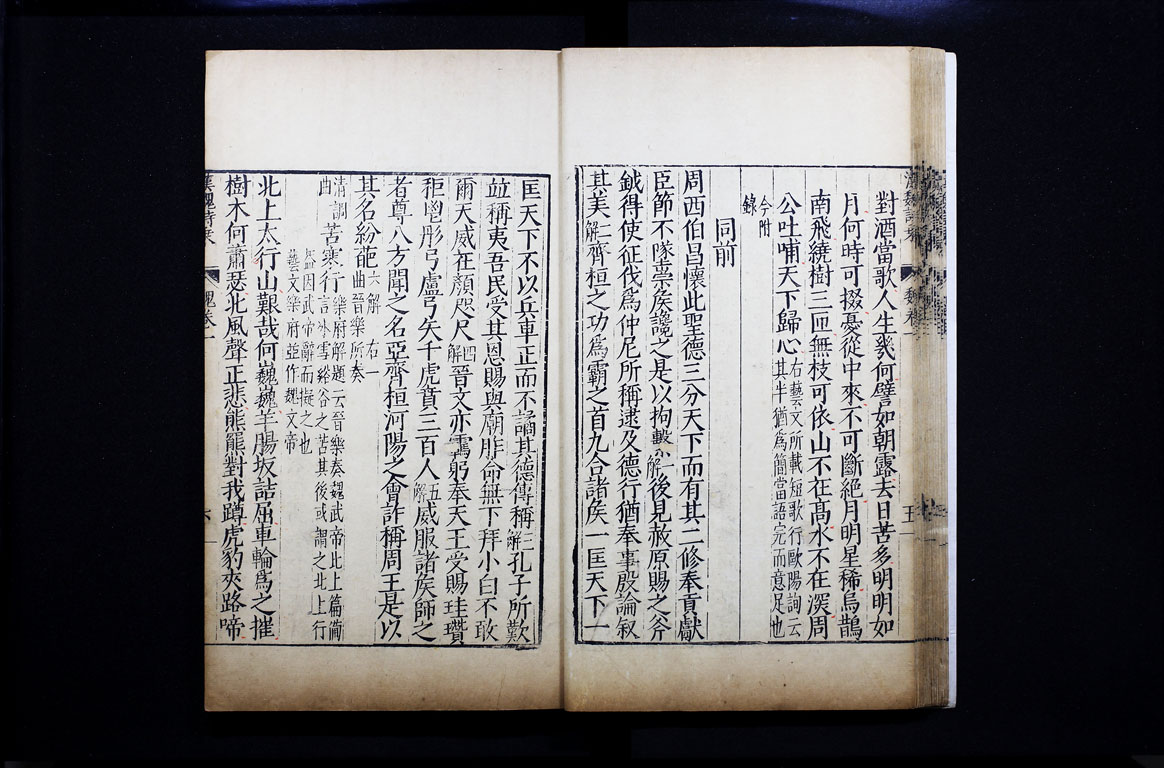 對酒當歌人生幾何譬如朝露去日苦多明明如
月何時可掇憂從中來不可斷絕月明星稀烏鵲
南飛繞樹三匝無枝可依山不在髙水不在深周
公吐哺天下歸心右藝文所載短歌行歐陽詢云
其半猶為簡當語完而意足也
今附
錄
同前
周西伯昌懷此聖德三分天下而有其二修奉貢獻
臣節不墜崇侯讒之是以拘繫一解後見赦原賜之斧
鉞得使征伐爲仲尼所稱逮及德行猶奉事殷論叙
其美二解齊桓之功爲霸之首九合諸侯一匡天下一
匡天下不以兵車正而不譎其德傳稱三解孔子所歎
竝稱夷吾民受其恩賜與廟胙命無下拜小白不敢
爾天威在顏咫尺四解晉文亦霸躬奉天王受賜珪瓚
秬鬯彤弓盧弓矢千虎賁三百人五解威服諸侯師之
者尊八方聞之名亞齊桓河陽之會詐稱周王是以
其名紛葩六解右一
曲晉樂所奏
清調
曲
苦寒行樂府解題云晉樂奏魏武帝北上篇備
言冰雪谿谷之苦其後或謂之北上行
葢因武帝辭而擬之也
藝文樂府並作魏文帝
北上太行山艱哉何巍巍羊腸坂詰屈車輪爲之摧
樹木何蕭瑟北風聲正悲熊羆對我蹲虎豹夾路啼
漢魏詩乘
魏卷一
六
魏卷
五